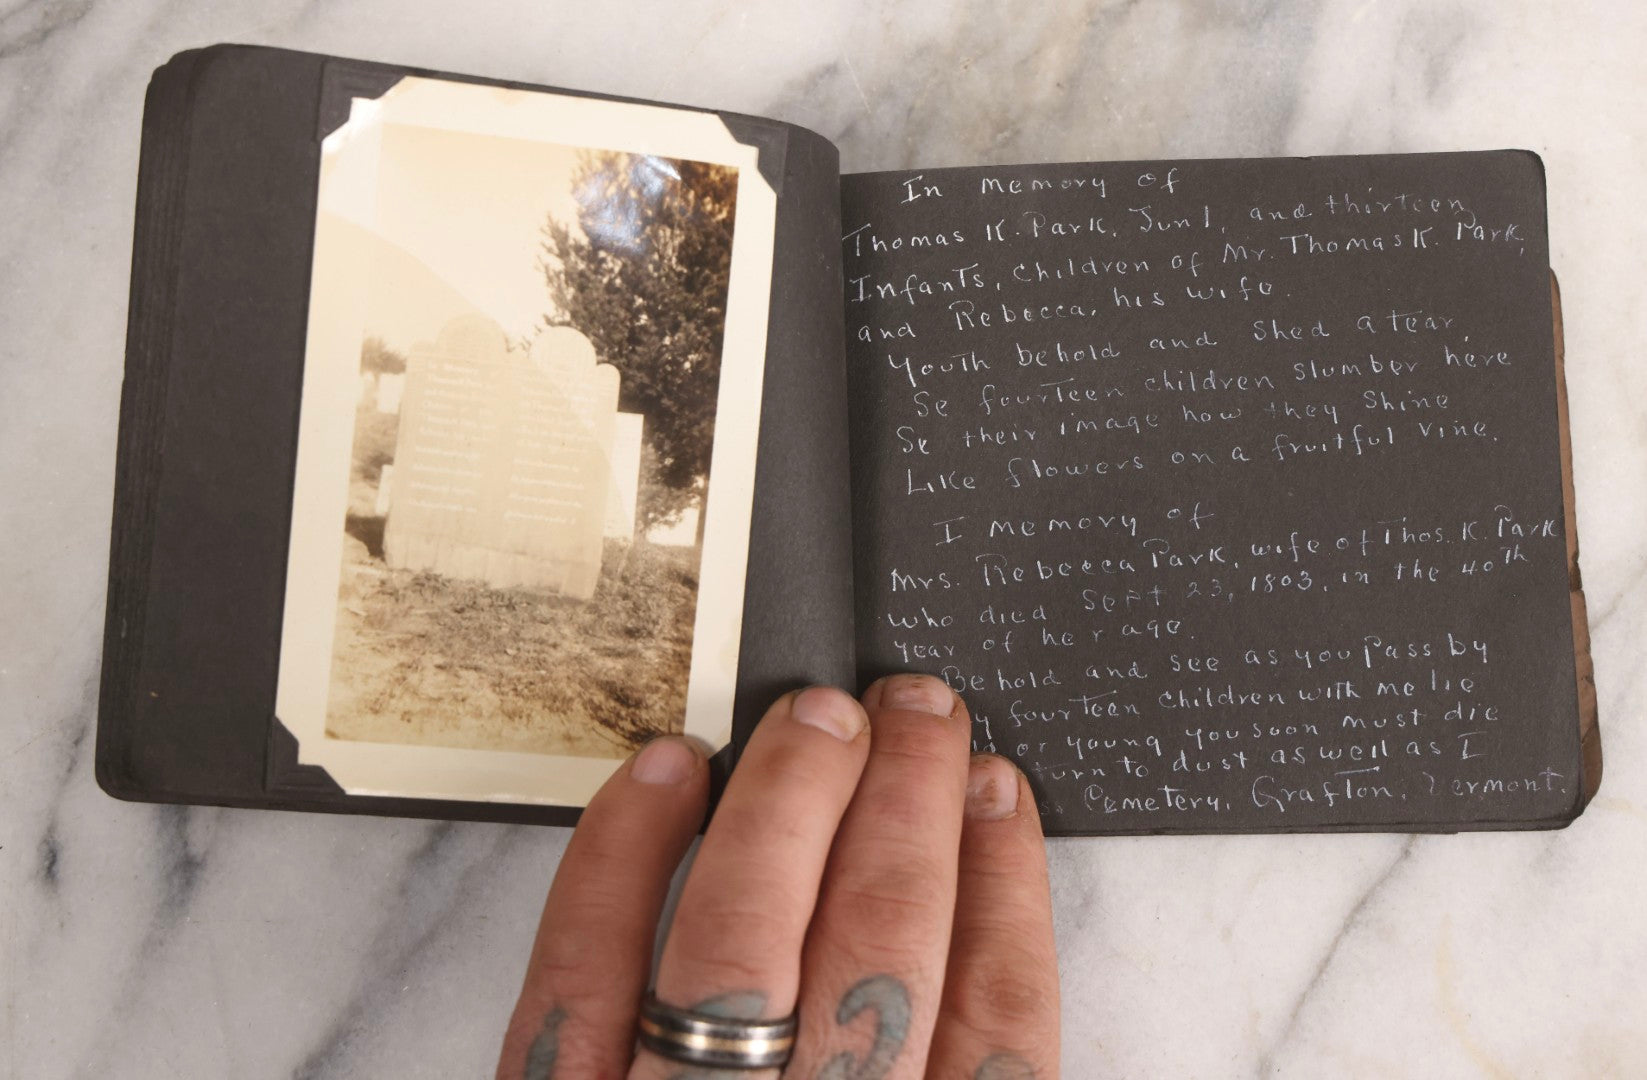 In memory of
Thomas K. Park, Jun1, and thirteen
Infants, children of Mr. Thomas K. Park,
and Rebecca, his wife.
Youth behold and shed a tear
Se fourteen children slumber here
Se their image how they shine
Like flowers on a fruitful vine.
I memory of
Mrs. Rebecca Park, wife of Thos. K. Park
who died Sept 23, 1803, in the 40th
year of her age.
Behold and see as you pass by
fourteen children with me lie
or young you soon must die
turn to dust as well as I
Cemetery, Grafton, Vermont.